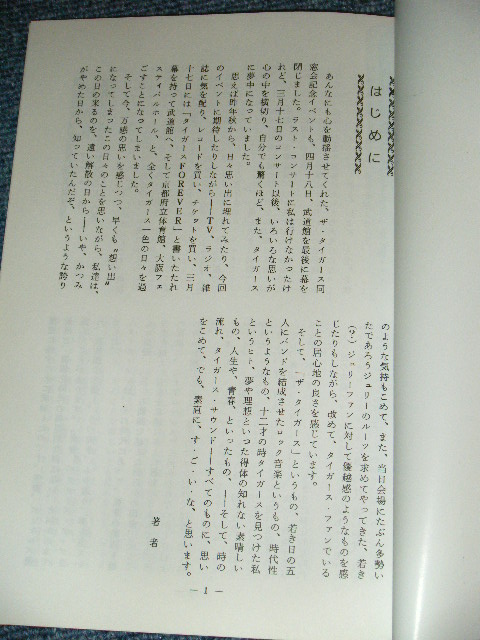 はじめに
あんなにも心を動揺させてくれた、ザ・タイガース同
窓会記念イベントも、四月十八日、武道館を最後に幕を
閉じました。ラスト・コンサートに私は行けなかったけ
れど、三月十七日のコンサート以後、いろいろな思いが
心の中を横切り、自分でも驚くほど、また、タイガース
に夢中になっていました。
思えば昨年秋から、日々思い出に埋れてみたり、今回
のイベントに期待したりしながら――TV、ラジオ、雑
誌に気を配り、レコードを買い、チケットを買い、三月
十七日には「タイガースFOREVER」と書いたたれ
幕を持って武道館へ、そして京都府立体育館、大阪フェ
スティバルホール、と、全くタイガース一色の日々を過
ごすことになってしまいました。
そして今、万感の思いを感じつつ、早くも“想い出”
になってしまったこの日々のことを思いながら、私達は、
この日の来るのを、遠い解散の日から――いや、かつみ
がやめた日から、知っていたんだぞ、というような誇り
のような気持もこめて、また、当日会場にたぶん多勢い
たであろうジュリーのルーツを求めてやってきた、若き
(?)ジュリーファンに対して優越感のようなものを感
じたりもしながら、改めて、タイガース・ファンでいる
ことの居心地の良さを感じています。
そして、「ザ・タイガース」というもの、若き日の五
人にバンドを結成させたロック音楽というもの、時代性
というようなもの、十二才の時タイガースを見つけた私
というヒト、夢や理想といった得体の知れない素晴しい
もの、人生や、青春、といったもの、――そして、時の
流れ、タイガース・サウンド――すべてのものに、思い
をこめて、でも、素直に、す・ご・い・な、と思います。
著者
― 1 ―